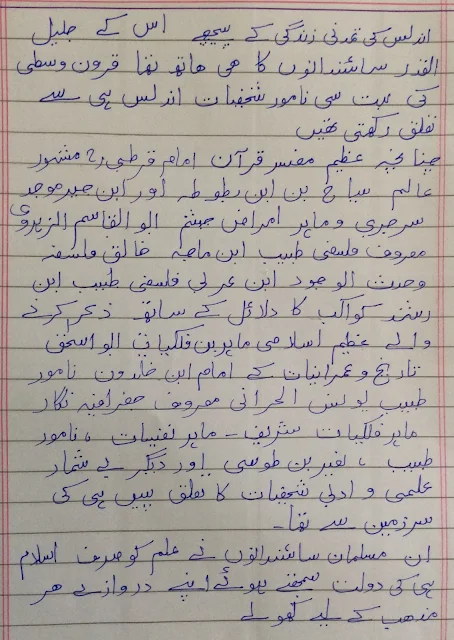 اندلس کی تمدنی زندگی کے پیچھے اس کے جلیل
القدر سائنسدانوں کا ھی ھاتھ تھا قرون وسطی
کی بہت سی نامور شخصیات اندلس ہی سے
تعلق رکھتی تھیں
چنانچہ عظیم مفسر قرآن امام قرطبی مشہور
عالم سیاح بن ابن بطوطہ اور ابن موجد
سرجری و ماہر امراض چشم ابو القاسم الزہروی
معروف فلسفی طبیب ابن ماجہ خالق فلسفہ
وحدت الوجود ابن عربی فلسفی طبیب ابن
رشد کواکب کا دلائل کے ساتھ ذکر کرنے
والے عظیم اسلامی ماہرین فلکیات ابو اسحق
تاریخ و عمرانیات کے امام ابن خلدون نامور
طبیب یونس الحرانی معروف جغرافیہ نگار
ماہر فلکیات شریف - ماہر نفسیات ، نامور
طبیب ، نصیر بن طوسی اور دیگر بے شمار
علمی و ادبی شخصیات کا تعلق یہیں ہی کی
سرزمین سے تھا -
ان مسلمان سائنسدانوں نے علم کو صرف اسلام
ہی کی دولت سمجھتے ہوئے اپنے دروازے ھر
مذھب کے لیے کھولے